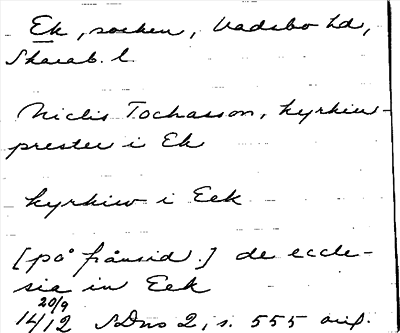 Ek, socken, Vadsbo hd,
Skarab. l.
Niclis Tochasson, kyrkiu-
prester i Ek
kyrkiw i Eek
[på frånsid.] de eccle-
sia in Eek
20/9
1412 SDns 2, s. 555 orig.